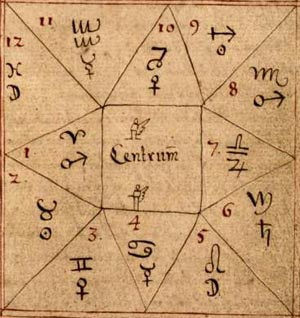 11 ♒ ☿
10 ♑ ♀
9 ♐
12 ♓ ☽
8 ♏ ♂
1 ♈ ♂
Centrum
7. ♎ ♃
2. ♉ ☉
6 ♍ ♄
3. ♊ ♀
4 ♋ ☿
5 ♌ ☽